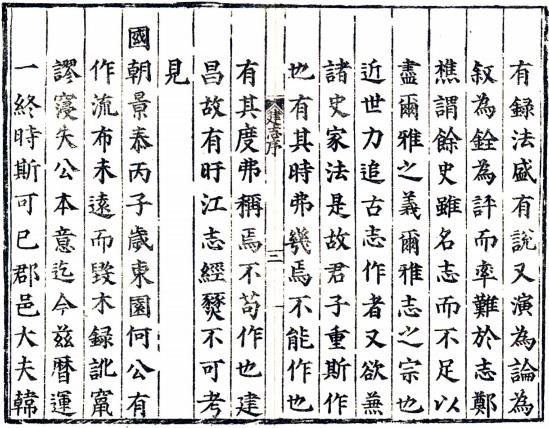 有錄法盛有說又演為論為
叙為銓為評而率難於志鄭
樵謂餘史雖名志而不足以
盡爾雅之義爾雅志之宗也
近世力追古志作者又欲兼
諸史家法是故君子重斯作
也有其時弗幾焉不能作也
建志序 三
有其度弗稱焉不苟作也建
昌故有旴江志經燹不可考
見
國朝景泰丙子歲東園何公有
作流布未遠而毀木錄訛竄
謬寖失公本意迄今茲曆運
一終時斯可已郡邑大夫韓